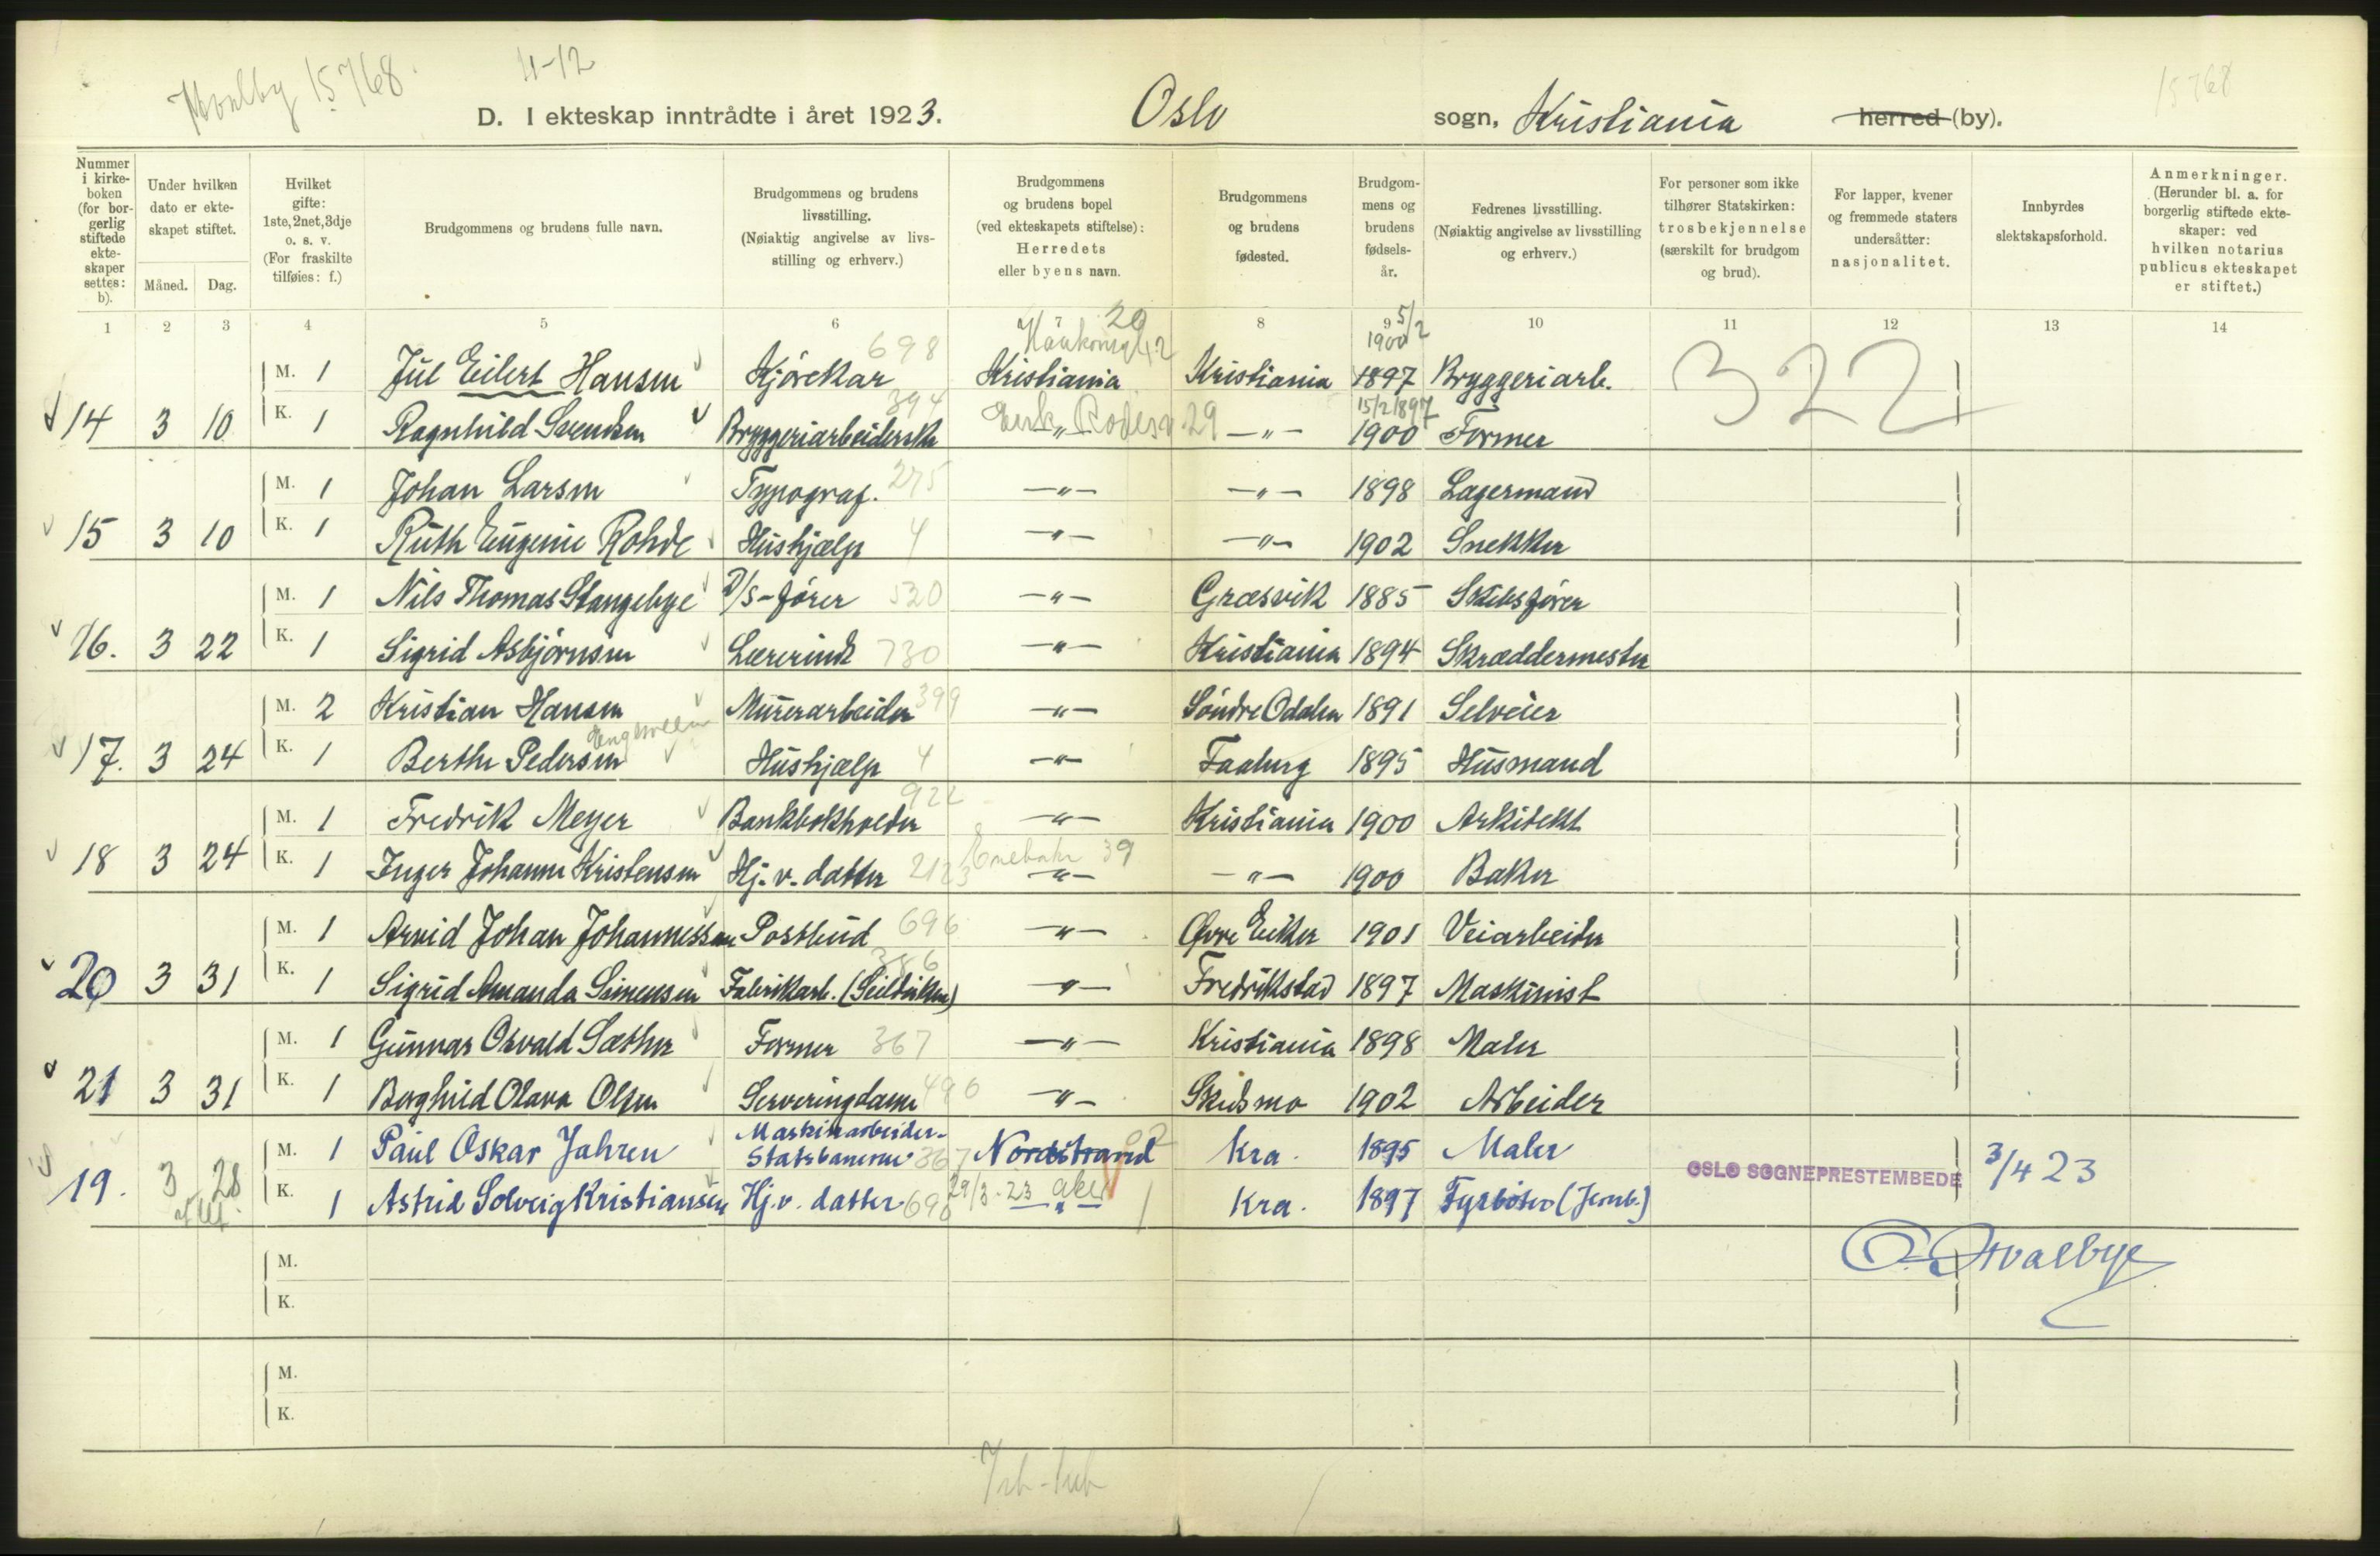 15768
11-12
15768
D. I ekteskap inntrådte i året 1923. Oslo sogn, Kristiania herred (by).
Nummer i kirkeboken (for borgerlig stiftede ekteskaper settes: b).
Under hvilken dato er ekteskapet stiftet.
Måned. Dag.
Hvilket gifte: 1ste, 2net, 3dje o. s. v. (For fraskilte tilføies: f.)
Brudgommens og brudens fulle navn.
Brudgommens og brudens livsstilling. (Nøiaktig angivelse av livsstilling og erhverv.)
Brudgommens og brudens bopel (ved ekteskapets stiftelse): Herredets eller byens navn.
Brudgommens og brudens fødested.
Brudgommens og brudens fødselsår.
Fedrenes livsstilling. (Nøiaktig angivelse av livsstilling og erhverv.)
For personer som ikke tilhører Statskirken: trosbekjennelse (særskilt for brudgom og brud).
For lapper, kvener og fremmede staters undersåtter: nasjonalitet.
Innbyrdes slektskapsforhold.
Anmerkninger. (Herunder bl. a. for borgerlig stiftede ekteskaper: ved hvilken notarius publicus ekteskapet er stiftet.)
1 2 3 4 5 6 7 8 9 10 11 12 13 14
20 5/2 1900
698
M. 1 Jul Eilert Hansen Kjørekar Kristiania Kristiania 1897 Bryggeriarb. 322
394 15/2 1897
14 3 10 K. 1 Ragnhild Svendsen Bryggeriarbeiderske —"— 29 —"— 1900 Former
M. 1 Johan Larsen Typograf. 275 —"— —"— 1898 Lagermand
15 3 10 K. 1 Ruth Eugenie Rohde Hushjælp 4 —"— —"— 1902 Snekker
M. 1 Nils Thomas Stangebye D/S-fører 520 —"— Græsvik 1885 Skibsfører
16. 3 22 K. 1 Sigrid Asbjørnsen Lærerinde 730 —"— Kristiania 1894 Skræddermester
M. 2 Kristian Hansen Murerarbeider 399 —"— Søndre Odalen 1891 Selveier
17. 3 24 K. 1 Berthe Pedersen Hushjælp 4 —"— Faaberg 1895 Husmand
922
M. 1 Fredrik Meyer Bankbokholder —"— Kristiania 1900 Arkitekt
18 3 24 K. 1 Inger Johanne Kristensen Hj. v. datter 2123 39 —"— —"— 1900 Baker
M. 1 Arvid Johan Johannessen Postbud 696 —"— Øvre Eiker 1901 Veiarbeider
386
20 3 31 K. 1 Sigrid Amanda Simensen Fabrikarb. (Seildukens) —"— Fredrikstad 1897 Maskinist
M. 1 Gunnar Osvald Sæther Former 367 —"— Kristiania 1898 Maler
21 3 31 K. 1 Borghild Olava Olsen Serveringdame 496 —"— Skedsmo 1902 Arbeider
M. 1 Paul Oskar Jahren Maskinarbeider- Statsbanerne 367 Nordstrand Kra. 1895 Maler
OSLO SOGNEPRESTEMBEDE 3/4 23
19. 3 28 K. 1 Astrid Solveig Kristiansen Hj. v. datter 696 29/3-23 Aker —"— Kra. 1897 Fyrbøter (Jernb.)
O. Hvalbye
M.
K.
M.
K.